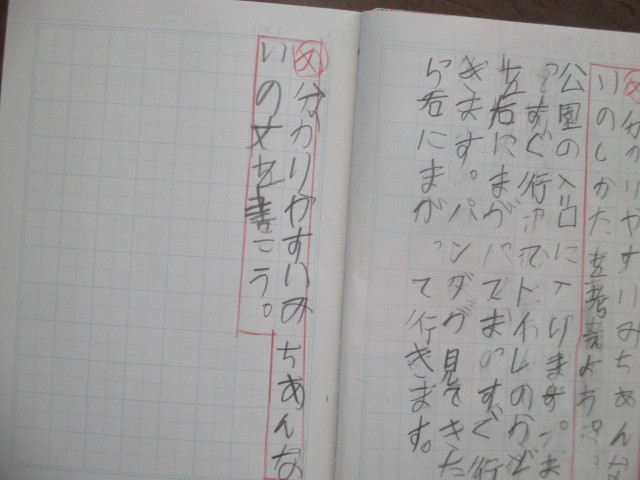 め分かりやすいみちあんな
いのしかたを考えよう。
公園の入口に入ります。ま
っすぐ行ってトイレのかど
を右にまがってまっすぐ行
きます。パンダが見てきた
ら右にまがって行きます。
め分かりやすいみちあんな
いの文を書こう。